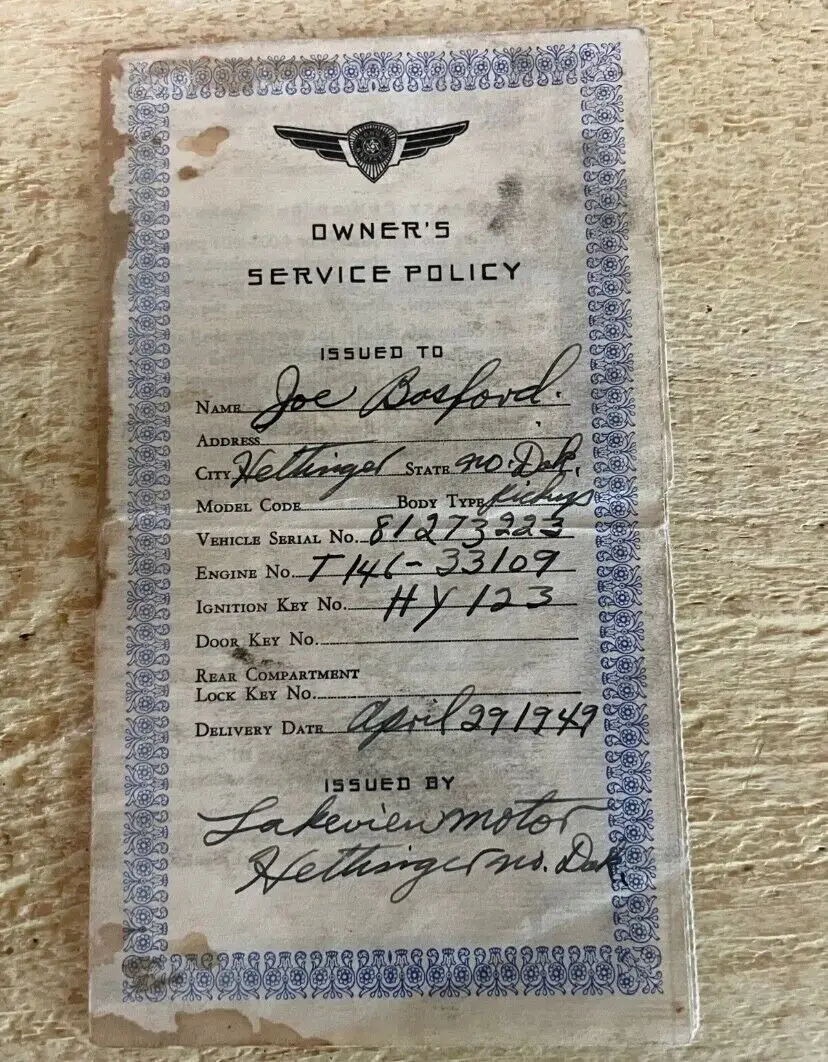 OWNER'S
SERVICE POLICY
ISSUED TO
NAME Joe Bosford.
ADDRESS
CITY Hettinger STATE no. Dak.
MODEL CODE BODY TYPE Pickup
VEHICLE SERIAL NO. 81273223
ENGINE NO. T146-33109
IGNITION KEY NO. HY 123
DOOR KEY NO.
REAR COMPARTMENT
LOCK KEY NO.
DELIVERY DATE April 29 1949
ISSUED BY
Lakeview motor
Hettinger no. Dak.